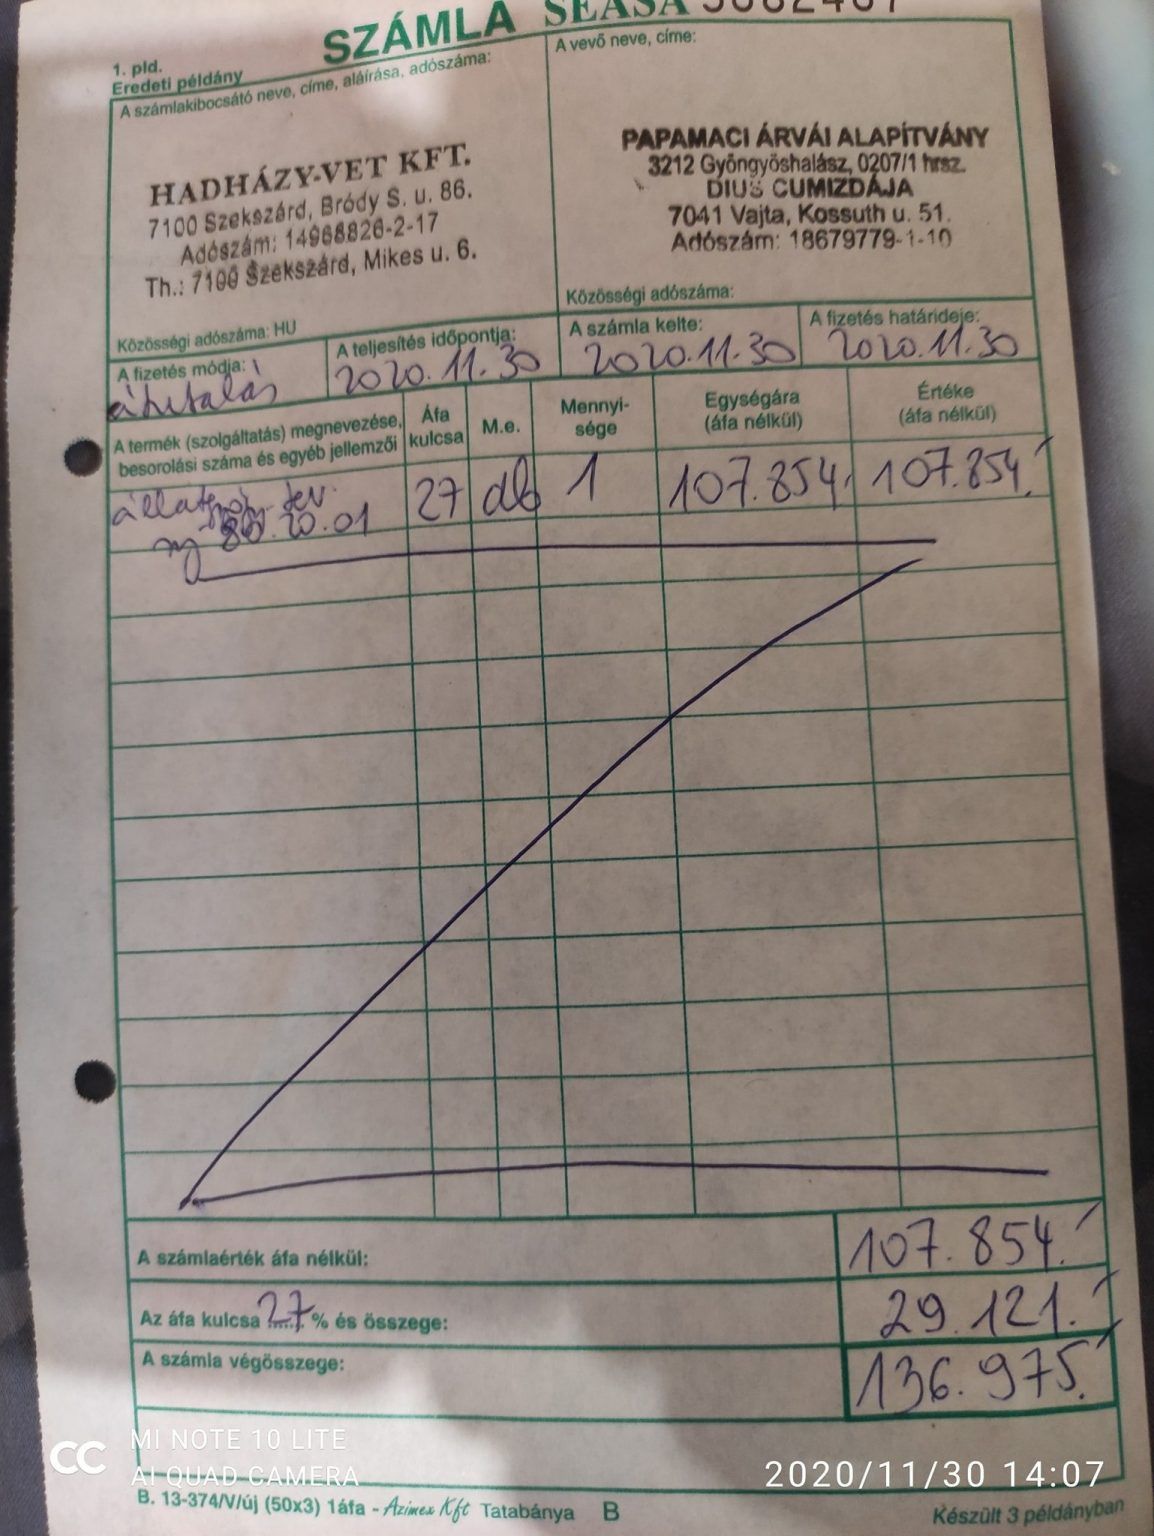 SZÁMLA SEASA
1. pld.
Eredeti példány
A számlakibocsátó neve, címe, aláírása, adószáma:
HADHÁZY-VET KFT.
7100 Szekszárd, Bródy S. u. 86.
Adószám: 14968826-2-17
Th.: 7100 Szekszárd, Mikes u. 6.
Közösségi adószáma: HU
A vevő neve, címe:
PAPAMACI ÁRVÁI ALAPÍTVÁNY
3212 Gyöngyöshalász, 0207/1 hrsz.
DIUS CUMIZDÁJA
7041 Vajta, Kossuth u. 51.
Adószám: 18679779-1-10
Közösségi adószáma:
A fizetés módja:
átutalás
A teljesítés időpontja:
2020.11.30
A számla kelte:
2020.11.30
A fizetés határideje:
2020.11.30
A termék (szolgáltatás) megnevezése,
besorolási száma és egyéb jellemzői
Áfa
kulcsa
M.e.
Mennyi-
sége
Egységára
(áfa nélkül)
Értéke
(áfa nélkül)
27 db 1 107.854, 107.854,
A számlaérték áfa nélkül: 107.854.
Az áfa kulcsa 27 % és összege: 29.121.
A számla végösszege: 136.975.
MI NOTE 10 LITE
AI QUAD CAMERA
2020/11/30 14:07
B. 13-374/V/új (50x3) 1áfa - Azimex Kft Tatabánya B
Készült 3 példányban